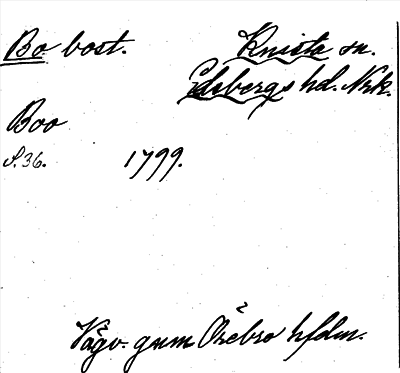 Bo bost. Knista sn.
Edsbergs hd. Nrk.
Boo
S. 36. 1799.
Vägv. gnm Örebro hfdm.